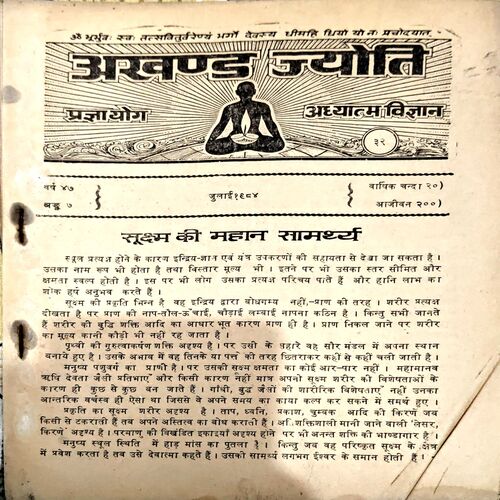 ॐ भूर्भुवः स्वः तत्सवितुर्वरेण्यं भर्गो देवस्य धीमहि धियो यो नः प्रचोदयात्
अखण्ड ज्योति
प्रज्ञायोग
अध्यात्म विज्ञान
३२
वर्ष ४७
अङ्क ७
जुलाई १९८४
वार्षिक चन्दा २०)
आजीवन २००)
सूक्ष्म की महान सामर्थ्य
स्थूल प्रत्यक्ष होने के कारण इन्द्रिय-ज्ञान एवं यंत्र उपकरणों की सहायता से देखा जा सकता है।
उसका नाम रूप भी होता है तथा विस्तार मूल्य भी। इतने पर भी उसका स्तर सीमित और
क्षमता स्वल्प होती है। इस पर भी लोग उसका प्रत्यक्ष परिचय पाते हैं और हानि लाभ का
शोक हर्ष अनुभव करते हैं।
सूक्ष्म की प्रकृति भिन्न है वह इन्द्रिय द्वारा बोधगम्य नहीं-प्राण की तरह। शरीर प्रत्यक्ष
दीखता है पर प्राण की नाप-तौल-ऊँचाई, चौड़ाई लम्बाई नापना कठिन है। किन्तु सभी जानते
हैं शरीर की बुद्धि शक्ति आदि का आधार भूत कारण प्राण ही है। प्राण निकल जाने पर शरीर
का मूल्य कानी कौड़ी भी नहीं रह जाता है।
पृथ्वी की गुरुत्वाकर्षण शक्ति अदृश्य है। पर उसी के सहारे वह सौर मंडल में अपना स्थान
बनाये हुए है। उसके अभाव में वह तिनके या पत्ते की तरह छितराकर कहीं से कहीं चली जाती है।
मनुष्य पशुवर्ग का प्राणी है। पर उसकी सूक्ष्म क्षमता का कोई आर-पार नहीं। महामानव
ऋषि देवता जैसी प्रतिभाएँ और किसी कारण नहीं मात्र अपनी सूक्ष्म शरीर की विशेषताओं के
कारण ही कुछ से कुछ बन जाते हैं। गांधी, बुद्ध जैसों की शारीरिक विशेषताएँ नहीं उनका
आन्तरिक वर्चस्व ही ऐसा था जिससे वे अपने समय का काया कल्प कर सकने में समर्थ हुए।
प्रकृति का सूक्ष्म शरीर अदृश्य है। ताप, ध्वनि, प्रकाश, चुम्बक आदि की किरणें जब
किसी से टकराती हैं तब अपने अस्तित्व का बोध कराती हैं। अति शक्तिशाली मानी जाने वाली 'लेसर,
किरणें' अदृश्य हैं। परमाणु की विखंडित इकाइयाँ अदृश्य होने पर भी अनन्त शक्ति की भाण्डागार हैं।
मनुष्य स्थूल स्थिति में हाड़ मांस का पुतला है। किन्तु जब वह परिष्कृत सूक्ष्म के क्षेत्र
में प्रवेश करता है तब उसे देवात्मा कहते हैं। उसकी सामर्थ्य लगभग ईश्वर के समान होती है।